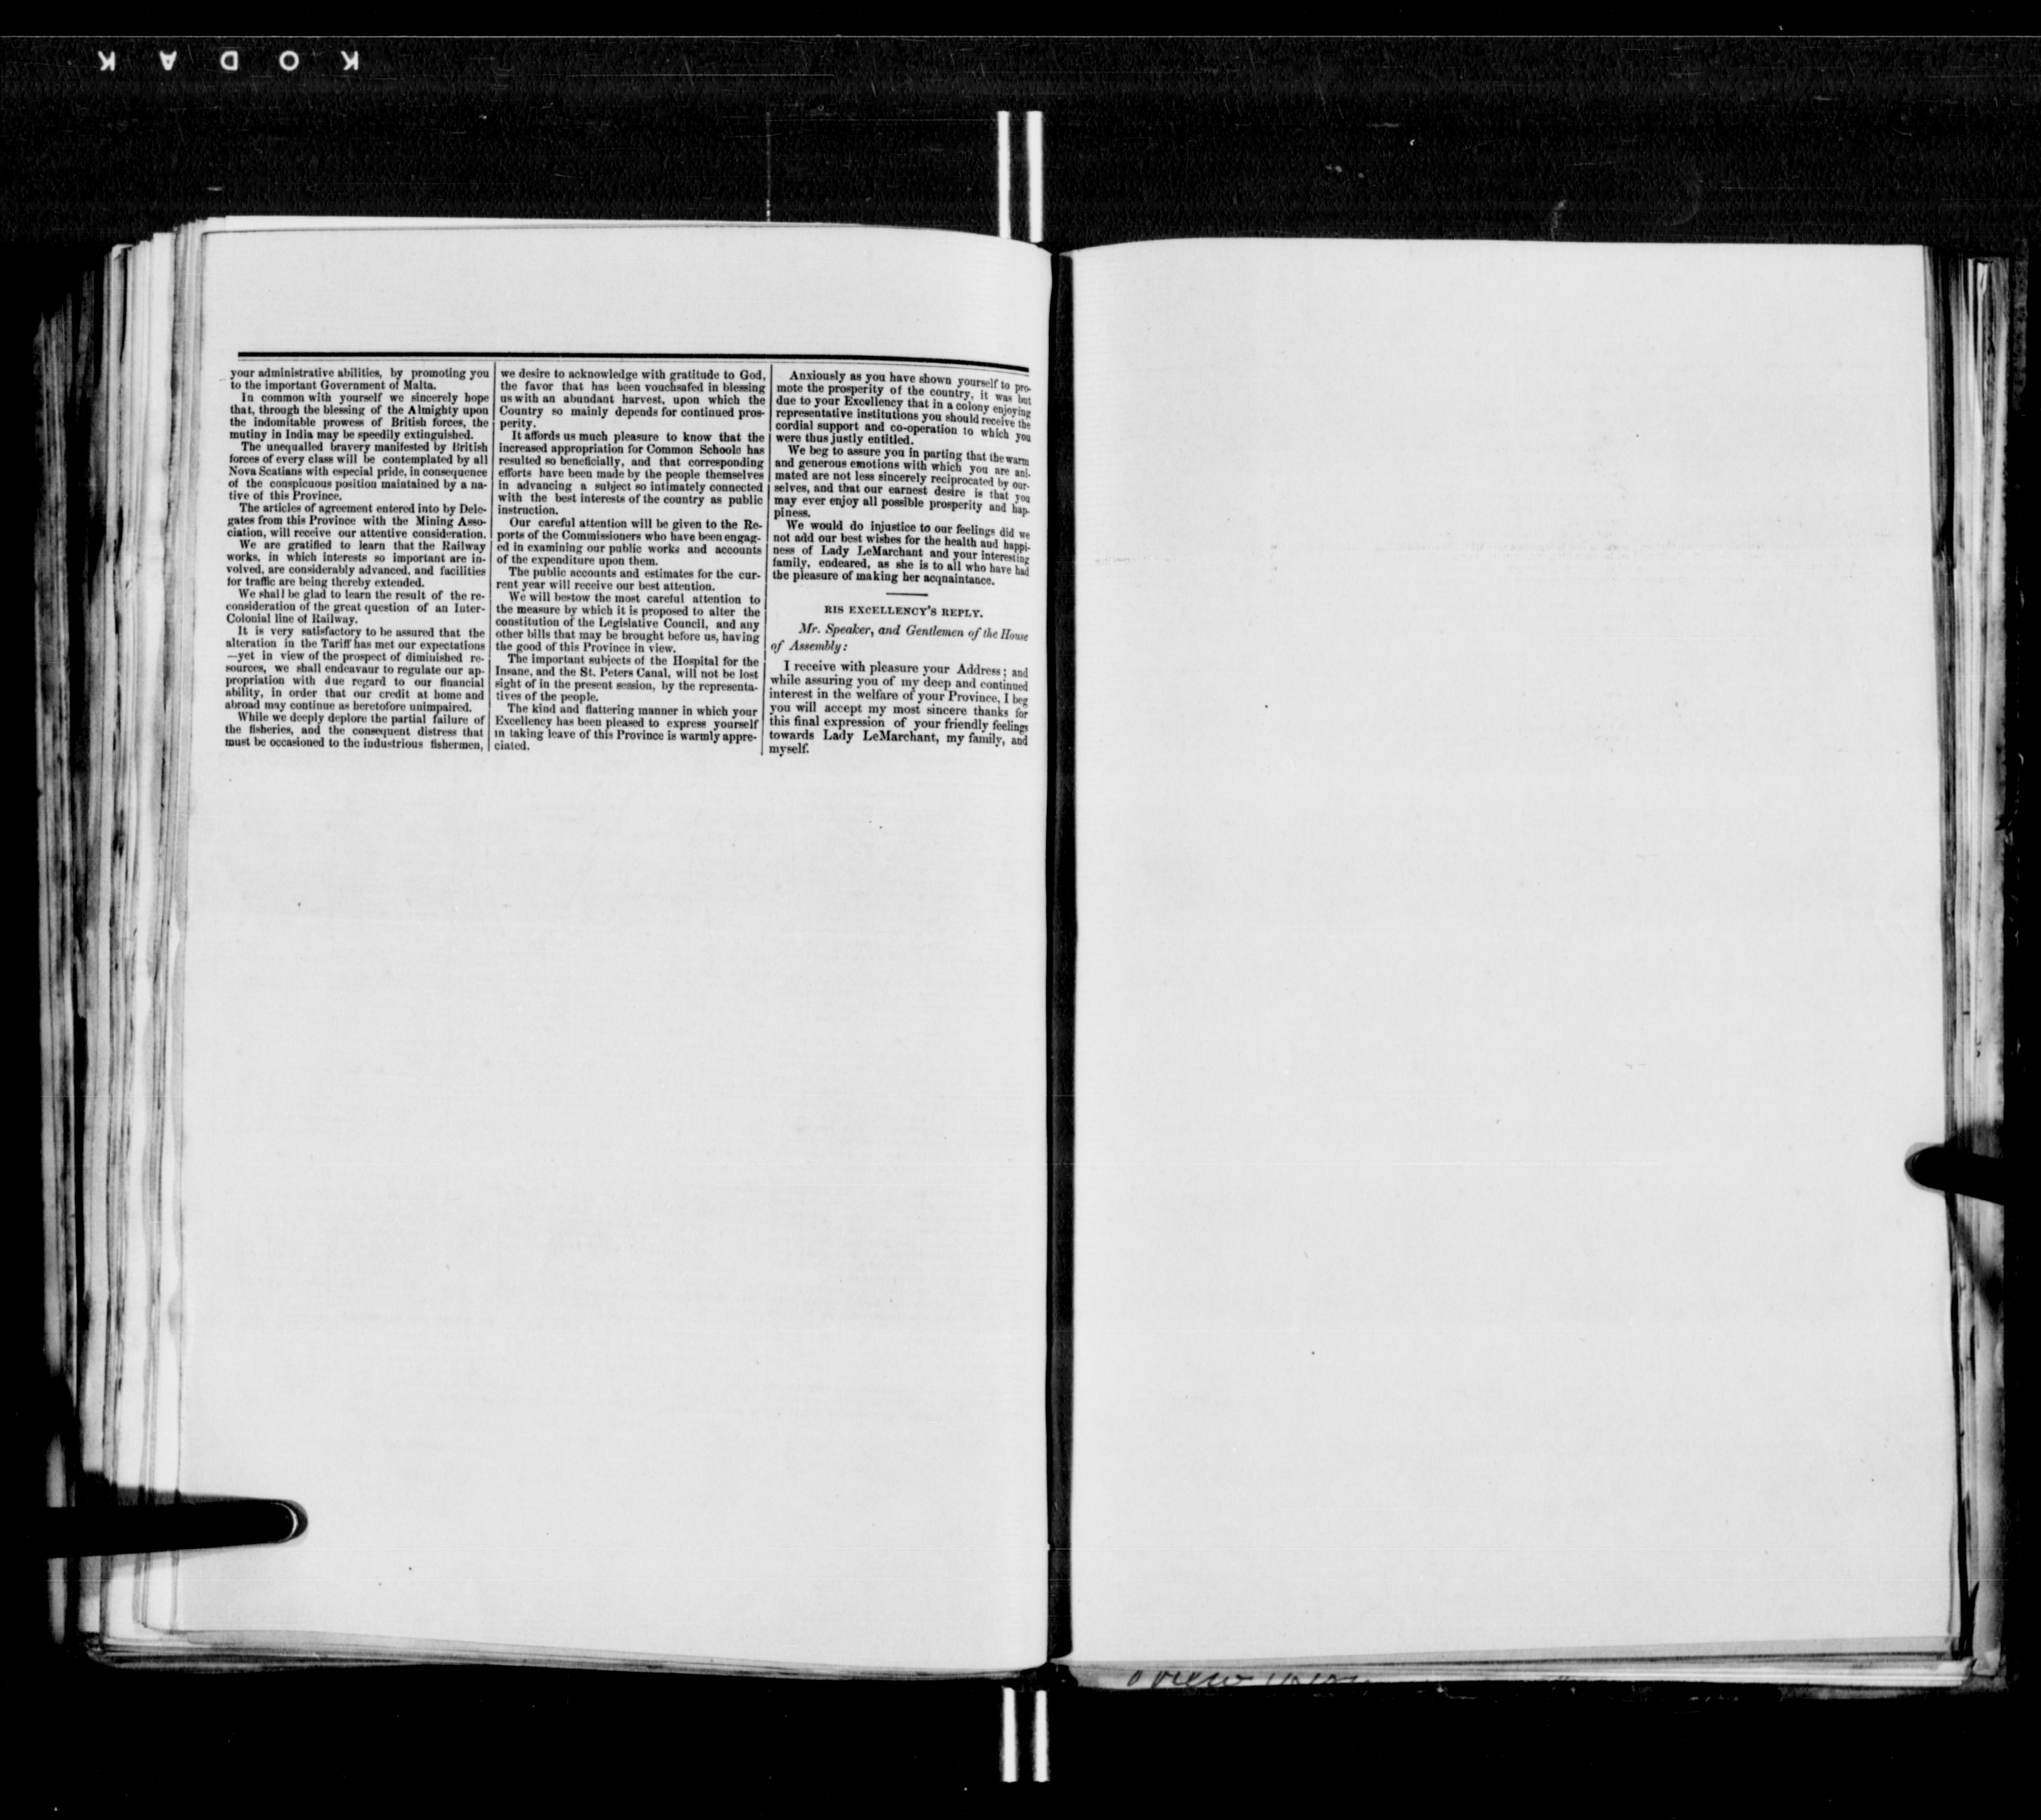 KODAK
your administrative abilities, by promoting you
to the important Government of Malta.
In common with yourself we sincerely hope
that, through the blessing of the Almighty upon
the indomitable prowess of British forces, the
mutiny in India may be speedily extinguished.
The unequalled bravery manifested by British
forces of every class will be contemplated by all
Nova Scatians with especial pride, in consequence
of the conspicuous position maintained by a na-
tive of this Province.
The articles of agreement entered into by Dele-
gates from this Province with the Mining Asso-
ciation, will receive our attentive consideration.
We are gratified to learn that the Railway
works, in which interests so important are in-
volved, are considerably advanced, and facilities
for traffic are being thereby extended.
We shall be glad to learn the result of the re-
consideration of the great question of an Inter-
Colonial line of Railway.
It is very satisfactory to be assured that the
alteration in the Tariff has met our expectations
—yet in view of the prospect of diminished re-
sources, we shall endeavaur to regulate our ap-
propriation with due regard to our financial
ability, in order that our credit at home and
abroad may continue as heretofore unimpaired.
While we deeply deplore the partial failure of
the fisheries, and the consequent distress that
must be occasioned to the industrious fishermen,
we desire to acknowledge with gratitude to God,
the favor that has been vouchsafed in blessing
us with an abundant harvest, upon which the
Country so mainly depends for continued pros-
perity.
It affords us much pleasure to know that the
increased appropriation for Common Schools has
resulted so beneficially, and that corresponding
efforts have been made by the people themselves
in advancing a subject so intimately connected
with the best interests of the country as public
instruction.
Our careful attention will be given to the Re-
ports of the Commissioners who have been engag-
ed in examining our public works and accounts
of the expenditure upon them.
The public accounts and estimates for the cur-
rent year will receive our best attention.
We will bestow the most careful attention to
the measure by which it is proposed to alter the
constitution of the Legislative Council, and any
other bills that may be brought before us, having
the good of this Province in view.
The important subjects of the Hospital for the
Insane, and the St. Peters Canal, will not be lost
sight of in the present session, by the representa-
tives of the people.
The kind and flattering manner in which your
Excellency has been pleased to express yourself
in taking leave of this Province is warmly appre-
ciated.
Anxiously as you have shown yourself to pro-
mote the prosperity of the country, it was but
due to your Excellency that in a colony enjoying
representative institutions you should receive the
cordial support and co-operation to which you
were thus justly entitled.
We beg to assure you in parting that the warm
and generous emotions with which you are ani-
mated are not less sincerely reciprocated by our-
selves, and that our earnest desire is that you
may ever enjoy all possible prosperity and hap-
piness.
We would do injustice to our feelings did we
not add our best wishes for the health aud happi-
ness of Lady LeMarchant and your interesting
family, endeared, as she is to all who have had
the pleasure of making her acqnaintance.
RIS EXCELLENCY'S REPLY.
Mr. Speaker, and Gentlemen of the House
of Assembly:
I receive with pleasure your Address; and
while assuring you of my deep and continued
interest in the welfare of your Province, I beg
you will accept my most sincere thanks for
this final expression of your friendly feelings
towards Lady LeMarchant, my family, and
myself.